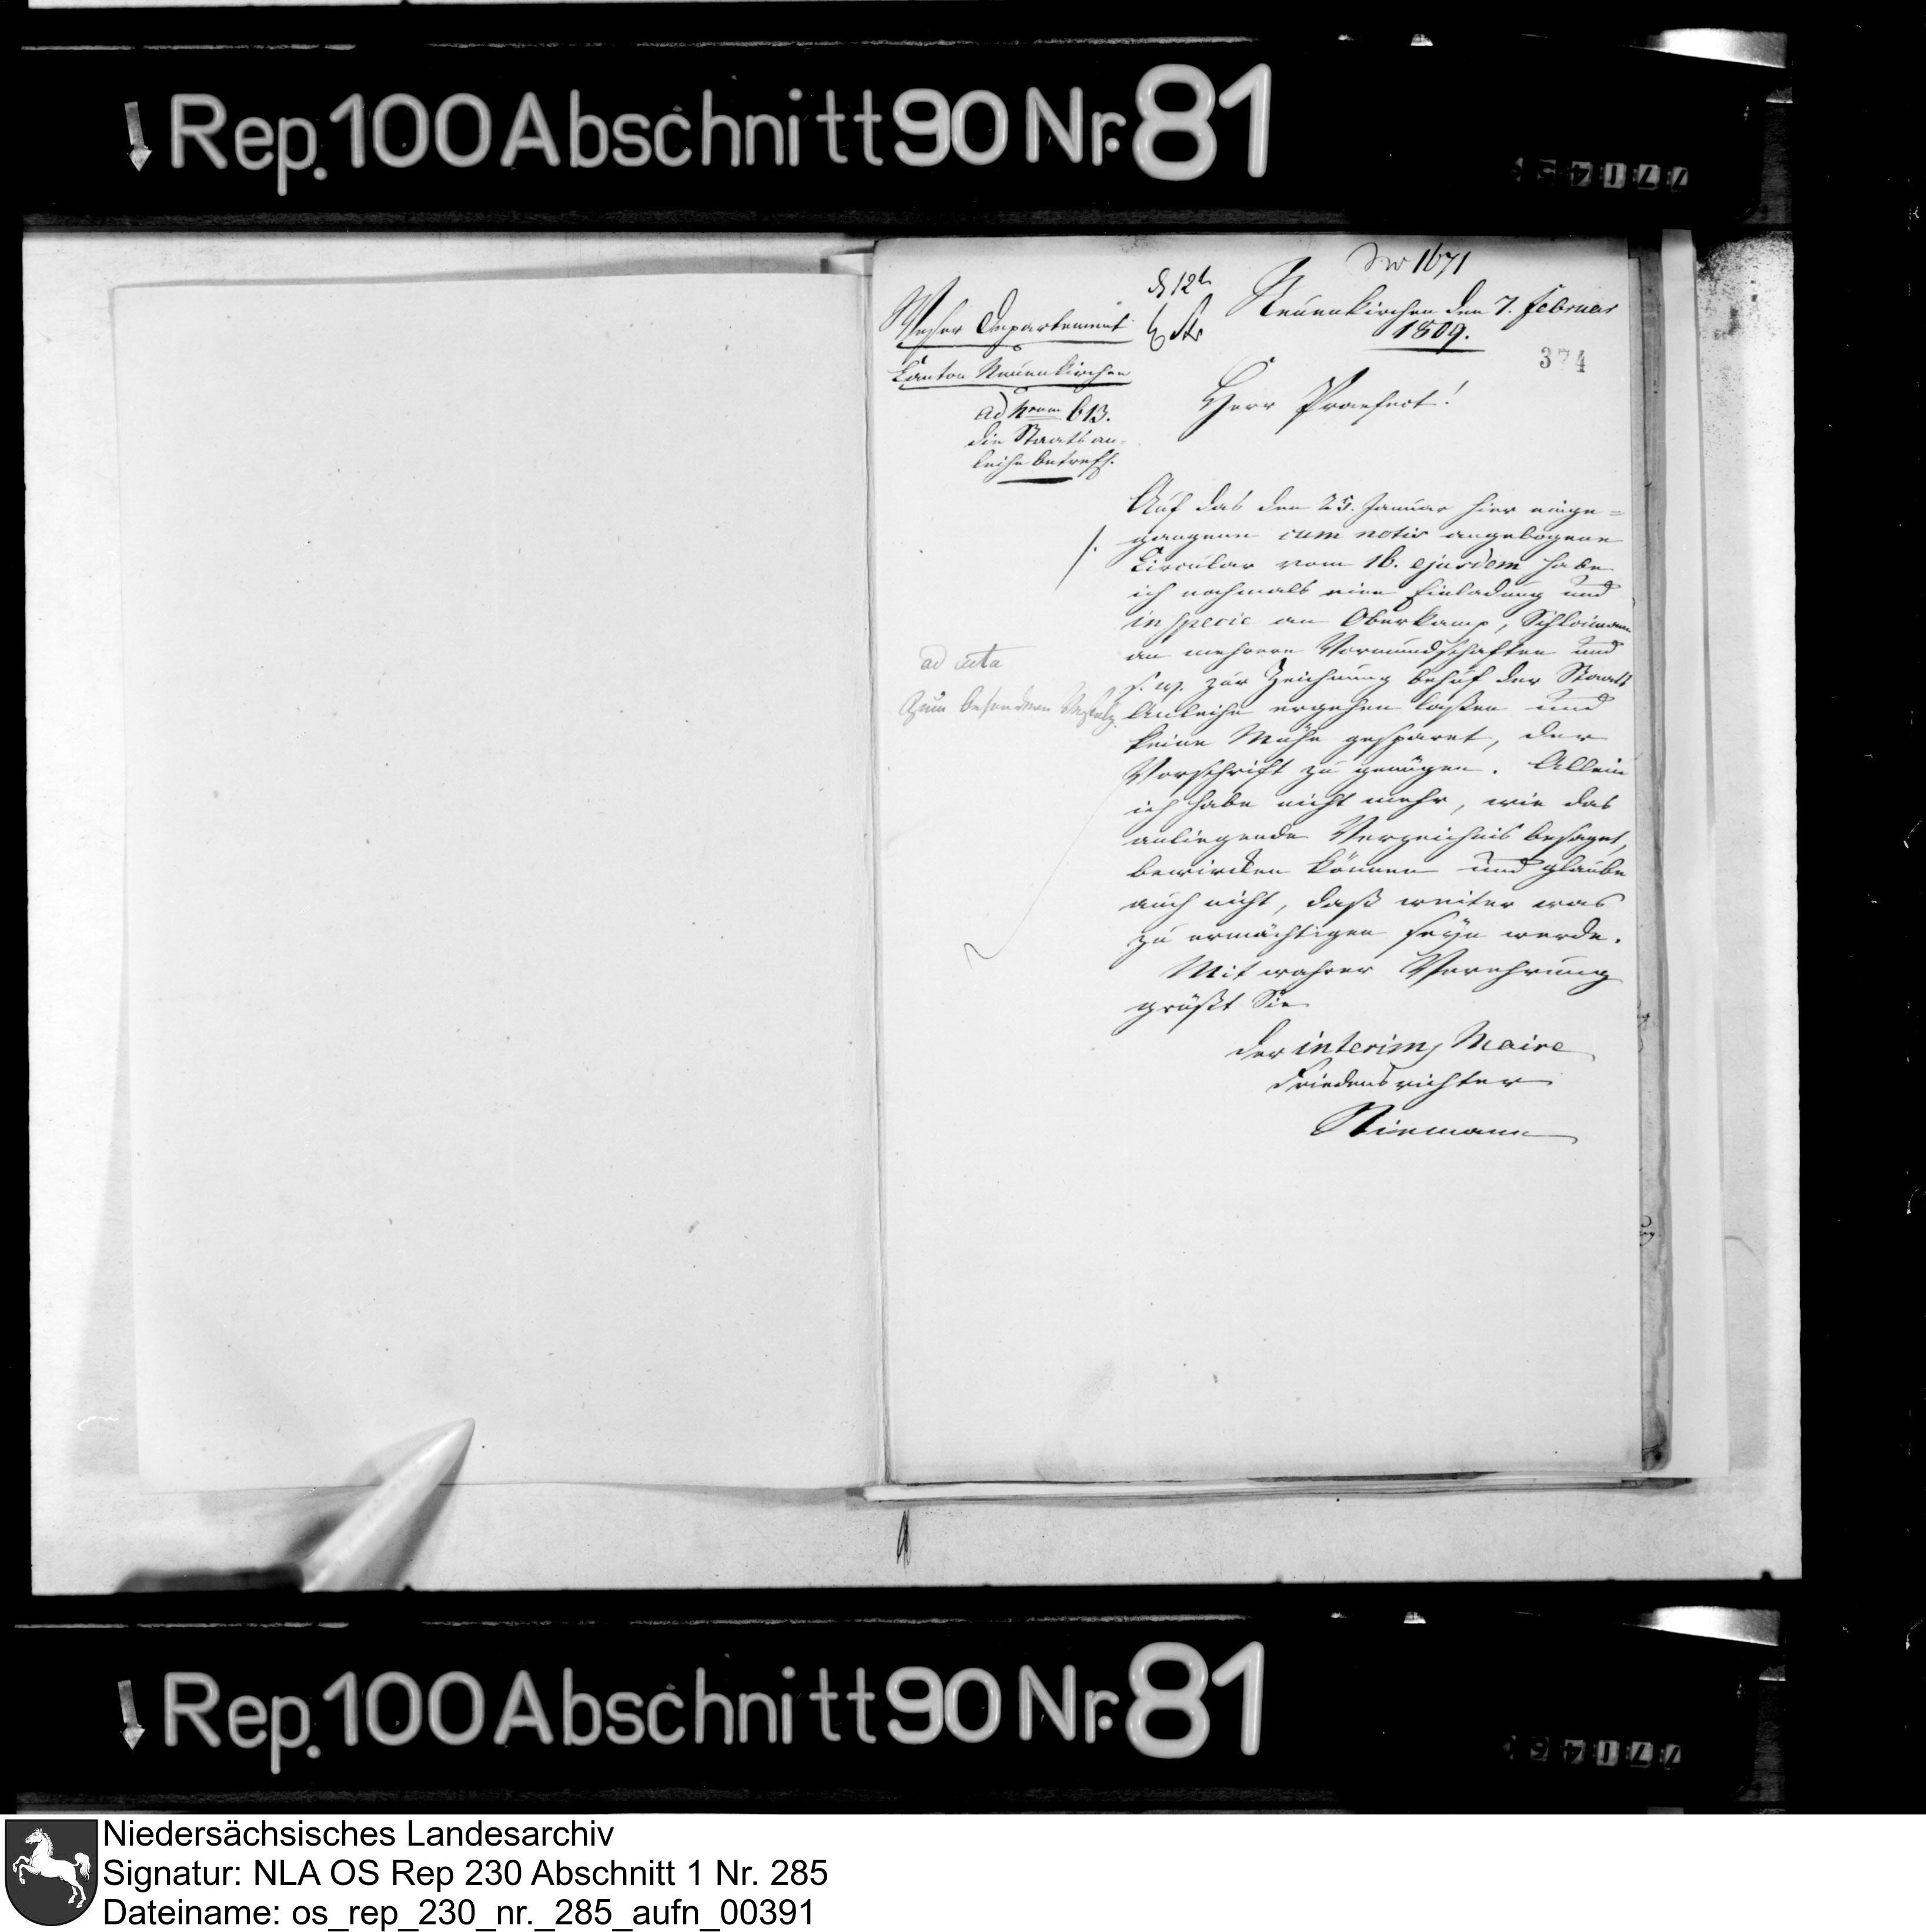 Rep. 100 Abschnitt 90 Nr. 81
No 1671
Weser Departement
Canton Neuenkirchen
ad Nrum 613.
die Staats an-
leihe betreff.
Neuenkirchen den 7. Februar
1809.
374
Herr Praefect!
Auf das den 25. Januar hier einge-
gangene cum notis angebogene
Circular vom 16. ejusdem habe
ich nochmals eine Einladung und
in specie an Oberkamp,
an mehrere Vormundschaften und
s. w. zur Zeichnung behuf der Staats
Anleihe ergehen laßen und
keine Mühe gesparet, der
Vorschrift zu genügen. Allein
ich habe nicht mehr, wie das
anliegende Verzeichnis besaget,
bewircken können und glaube
auch nicht, daß weiter was
zu ermächtigen seyn werde.
Mit wahrer Verehrung
grüßt Sie
der interims Maire
Friedensrichter
Niemann
ad acta
zum besondern
Rep. 100 Abschnitt 90 Nr. 81
Niedersächsisches Landesarchiv
Signatur: NLA OS Rep 230 Abschnitt 1 Nr. 285
Dateiname: os_rep_230_nr._285_aufn_00391